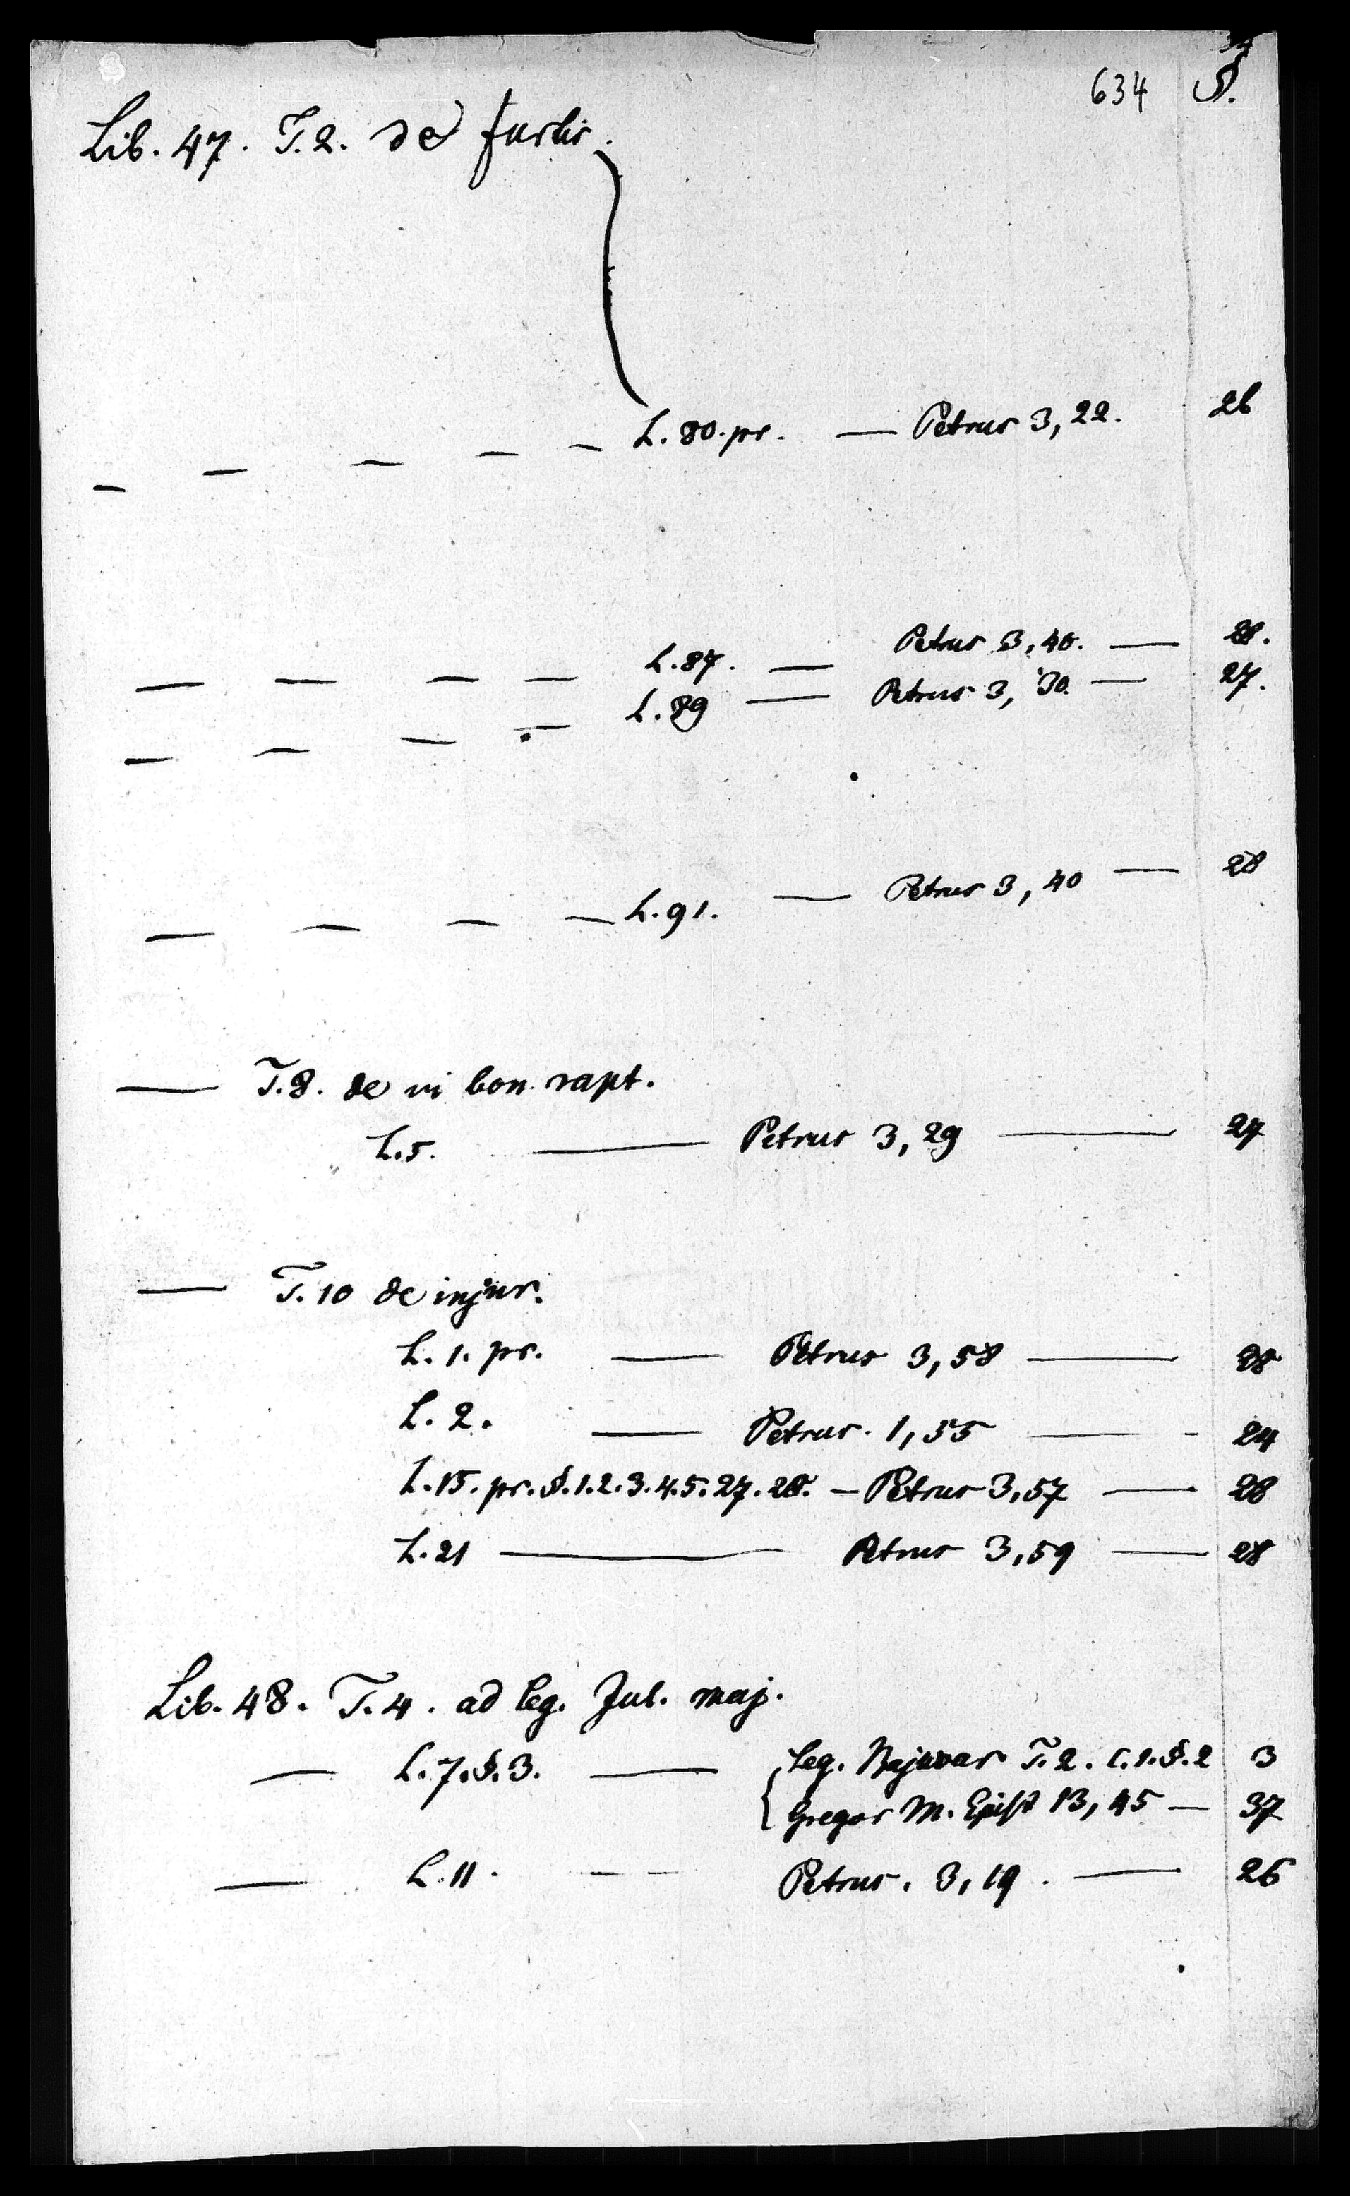 634 S.
Lib. 47. T. 2. de furtis.
— — — — — L. 80. pr. — Petrus 3, 22. 26
— — — — L. 87. — Petrus 3, 40. — 28.
— — — — L. 89 — Petrus 3, 30. — 27.
— — — — L. 91. — Petrus 3, 40 — 28
— T. 8. de vi bon. rapt.
L. 5. — Petrus 3, 29 — 27
— T. 10 de injur.
L. 1. pr. — Petrus 3, 58 — 28
L. 2. — Petrus. 1, 55 — 24
L. 15. pr. §. 1. 2. 3. 4. 5. 27. 28. — Petrus 3, 57 — 28
L. 21 — Petrus 3, 59 — 28
Lib. 48. T. 4. ad leg. Jul. maj.
— L. 7. §. 3. — { Leg. Bajuvar T. 2. c. 1. §. 2 3
Gregor M. Epist 13, 45 — 37
— L. 11. — — Petrus. 3, 19. — 26